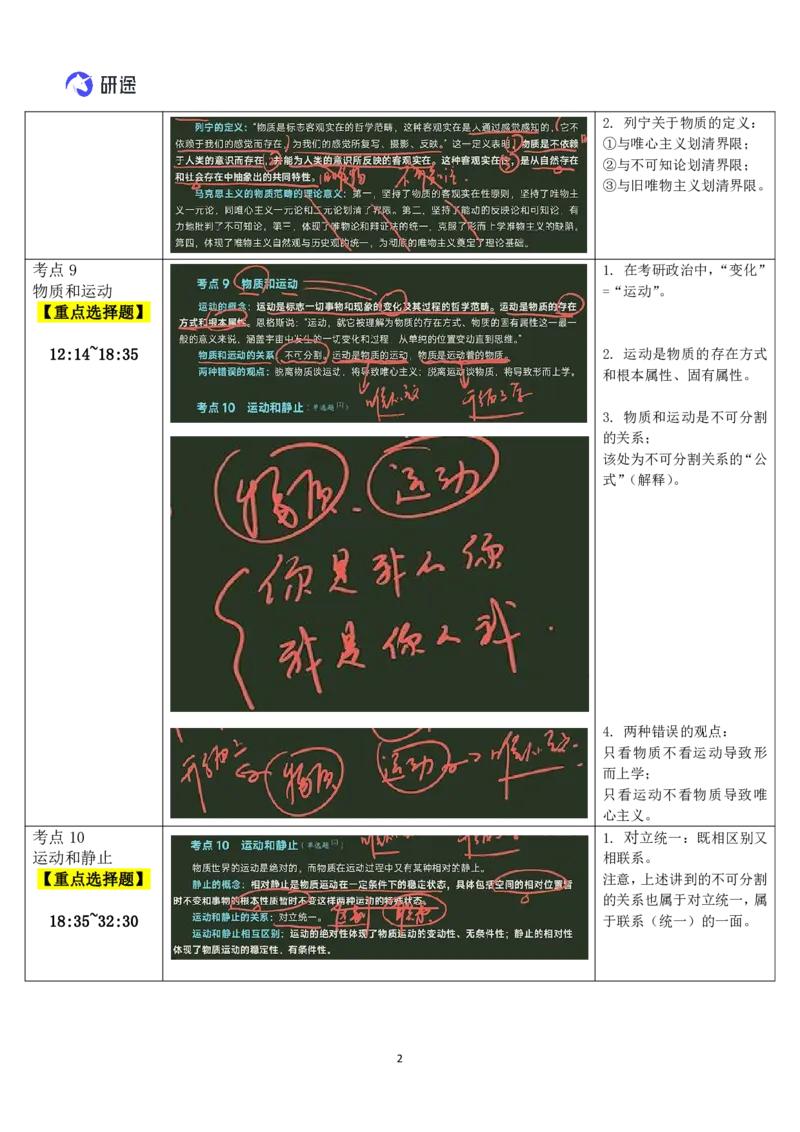 研途
列宁的定义："物质是标志客观实在的哲学范畴，这种客观实在是人通过感觉感知的，它不
依赖于我们的感觉而存在，为我们的感觉所复写、摄影、反映。"这一定义表明，物质是不依赖
于人类的意识而存在，并能为人类的意识所反映的客观实在。这种客观实在性，是从自然存在
和社会存在中抽象出的共同特性。
马克思主义的物质范畴的理论意义：第一，坚持了物质的客观实在性原则，坚持了唯物主
义一元论，同唯心主义一元论和二元论划清了界限。第二，坚持了能动的反映论和可知论，有
力地批判了不可知论。第三，体现了唯物论和辩证法的统一，克服了形而上学唯物主义的缺陷。
第四，体现了唯物主义自然观与历史观的统一，为彻底的唯物主义奠定了理论基础。
2. 列宁关于物质的定义：
①与唯心主义划清界限；
②与不可知论划清界限；
③与旧唯物主义划清界限。
考点 9
物质和运动
【重点选择题】
12:14~18:35
考点 9 物质和运动
运动的概念：运动是标志一切事物和现象的变化及其过程的哲学范畴。运动是物质的存在
方式和根本属性。恩格斯说："运动，就它被理解为物质的存在方式、物质的固有属性这一最一
般的意义来说，涵盖宇宙中发生的一切变化和过程，从单纯的位置变动直到思维。"
物质和运动的关系：不可分割。运动是物质的运动，物质是运动着的物质。
两种错误的观点：脱离物质谈运动，将导致唯心主义；脱离运动谈物质，将导致形而上学。
考点 10 运动和静止（单选题）
物质 运动
你是我人你
我是你人我
物质 运动
1. 在考研政治中，“变化”
=“运动”。
2. 运动是物质的存在方式
和根本属性、固有属性。
3. 物质和运动是不可分割
的关系；
该处为不可分割关系的“公
式”（解释）。
4. 两种错误的观点：
只看物质不看运动导致形
而上学；
只看运动不看物质导致唯
心主义。
考点 10
运动和静止
【重点选择题】
18:35~32:30
考点 10 运动和静止（单选题）
物质世界的运动是绝对的，而物质在运动过程中又有某种相对的静止。
静止的概念：相对静止是物质运动在一定条件下的稳定状态，具体包括空间的相对位置暂
时不变和事物的根本性质暂时不变这样两种运动的特殊状态。
运动和静止的关系：对立统一。 区别 联系
运动和静止相互区别：运动的绝对性体现了物质运动的变动性、无条件性；静止的相对性
体现了物质运动的稳定性、有条件性。
1. 对立统一：既相区别又
相联系。
注意，上述讲到的不可分割
的关系也属于对立统一，属
于联系（统一）的一面。
2